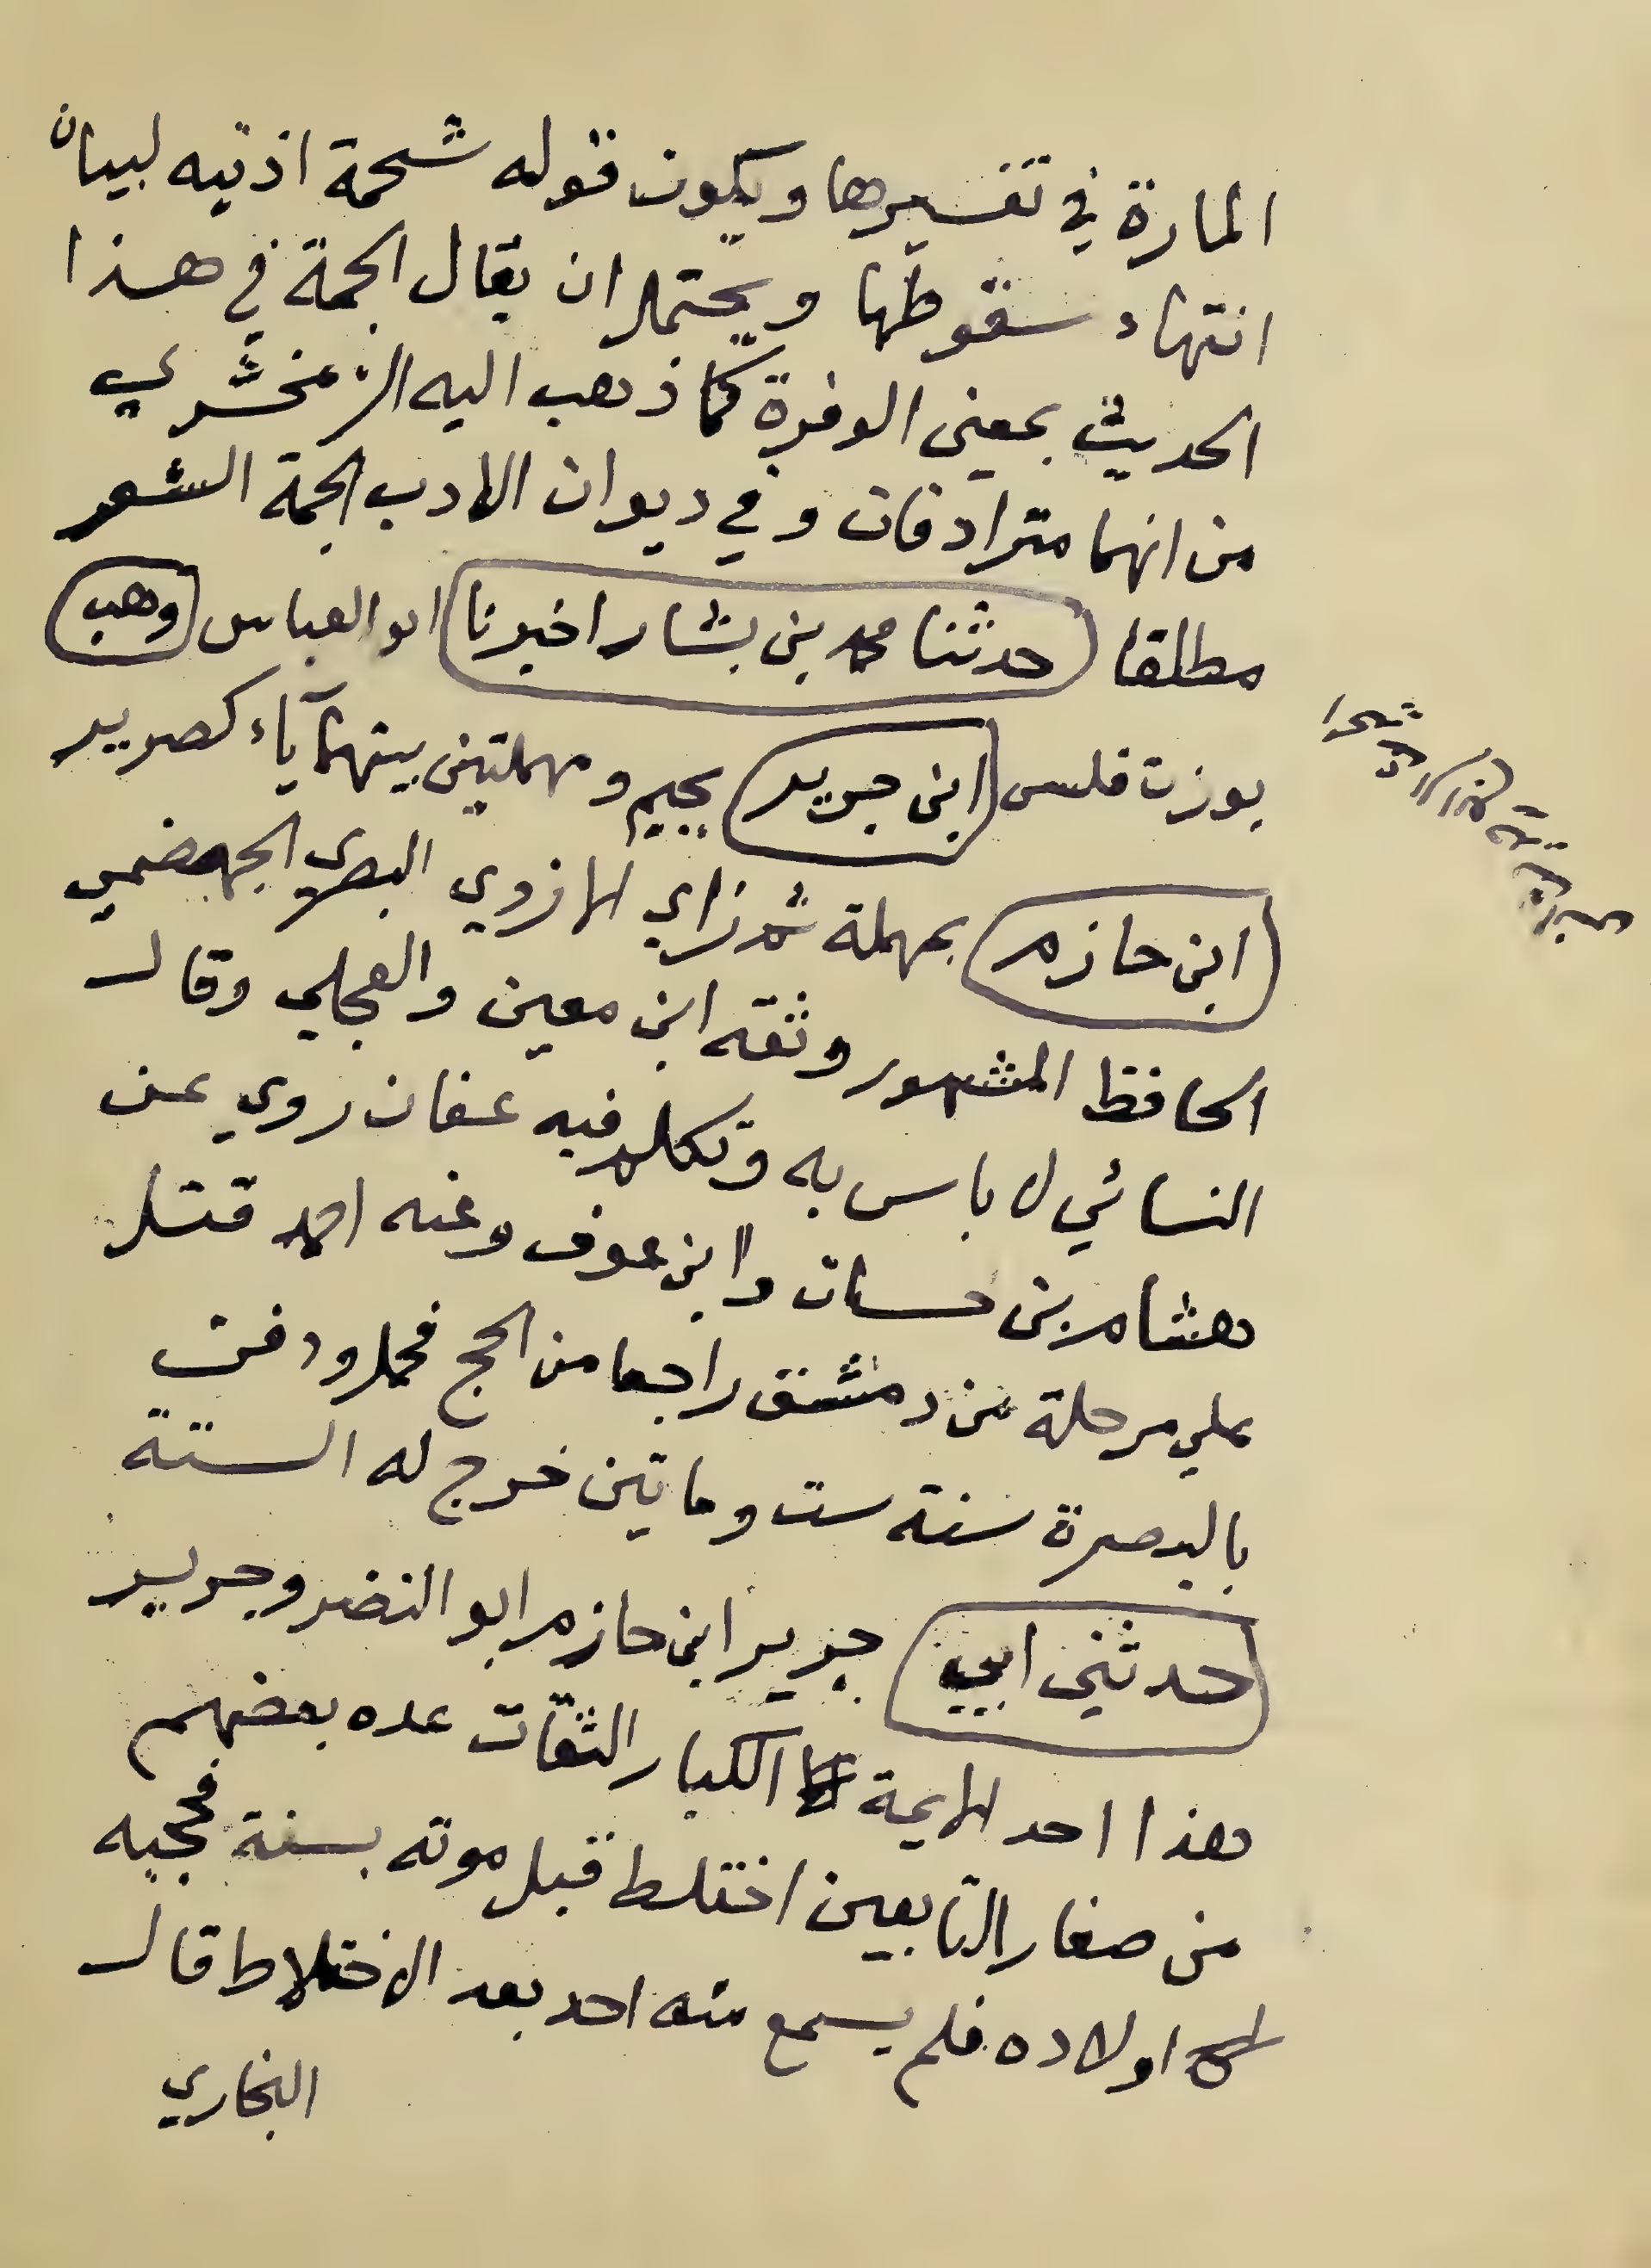 المارة في تفسيرها ويكون قوله شحمة اذنيه لبيان
انتهاء سقوطها ويحتمل ان يقال الجمة في هذا
الحديث بمعنى الوفرة كما ذهب اليه الزمخشري
من انهما مترادفان وفي ديوان الادب الجمة الشعر
مطلقا حدثنا محمد بن بشار اخبرنا ابو العباس وهب
بوزن فلس ابن جرير بجيم ومهملتين بينهما ياء كصرير
ابن حازم بمهملة ثم زاي الازدي البصري الجهضمي
الحافظ المشهور وثقه ابن معين والعجلي وقال
النسائي لا باس به وتكلم فيه عفان روي عن
هشام بن حسان وابن عوف وعنه احمد قتل
علي مرحلة من دمشق راجعا من الحج فحمل ودفن
بالبصرة سنة ست وماتين خرج له الستة
حدثني ابي جرير ابن حازم ابو النضر وجرير
هذا احد الايمة الكبار الثقات عده بعضهم
من صغار التابعين اختلط قبل موته بسنة فحجبه
اولاده فلم يسمع منه احد بعد الاختلاط قال
البخاري